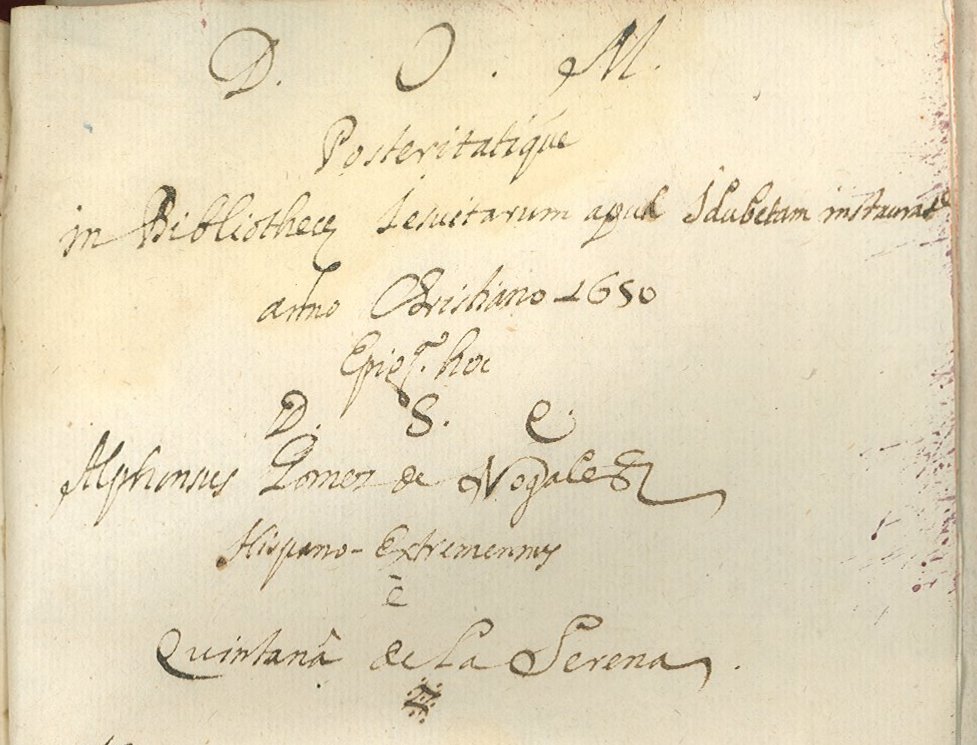 D. O. M.
Posteritatique
in Bibliothecę Iesuitarum apud Idubedam instauratę
anno Christiano 1650
hoc
D. S. C.
Alphonsus Gomez de Nogales
Hispano-Extremennus
è
Quintanâ de La Serena.